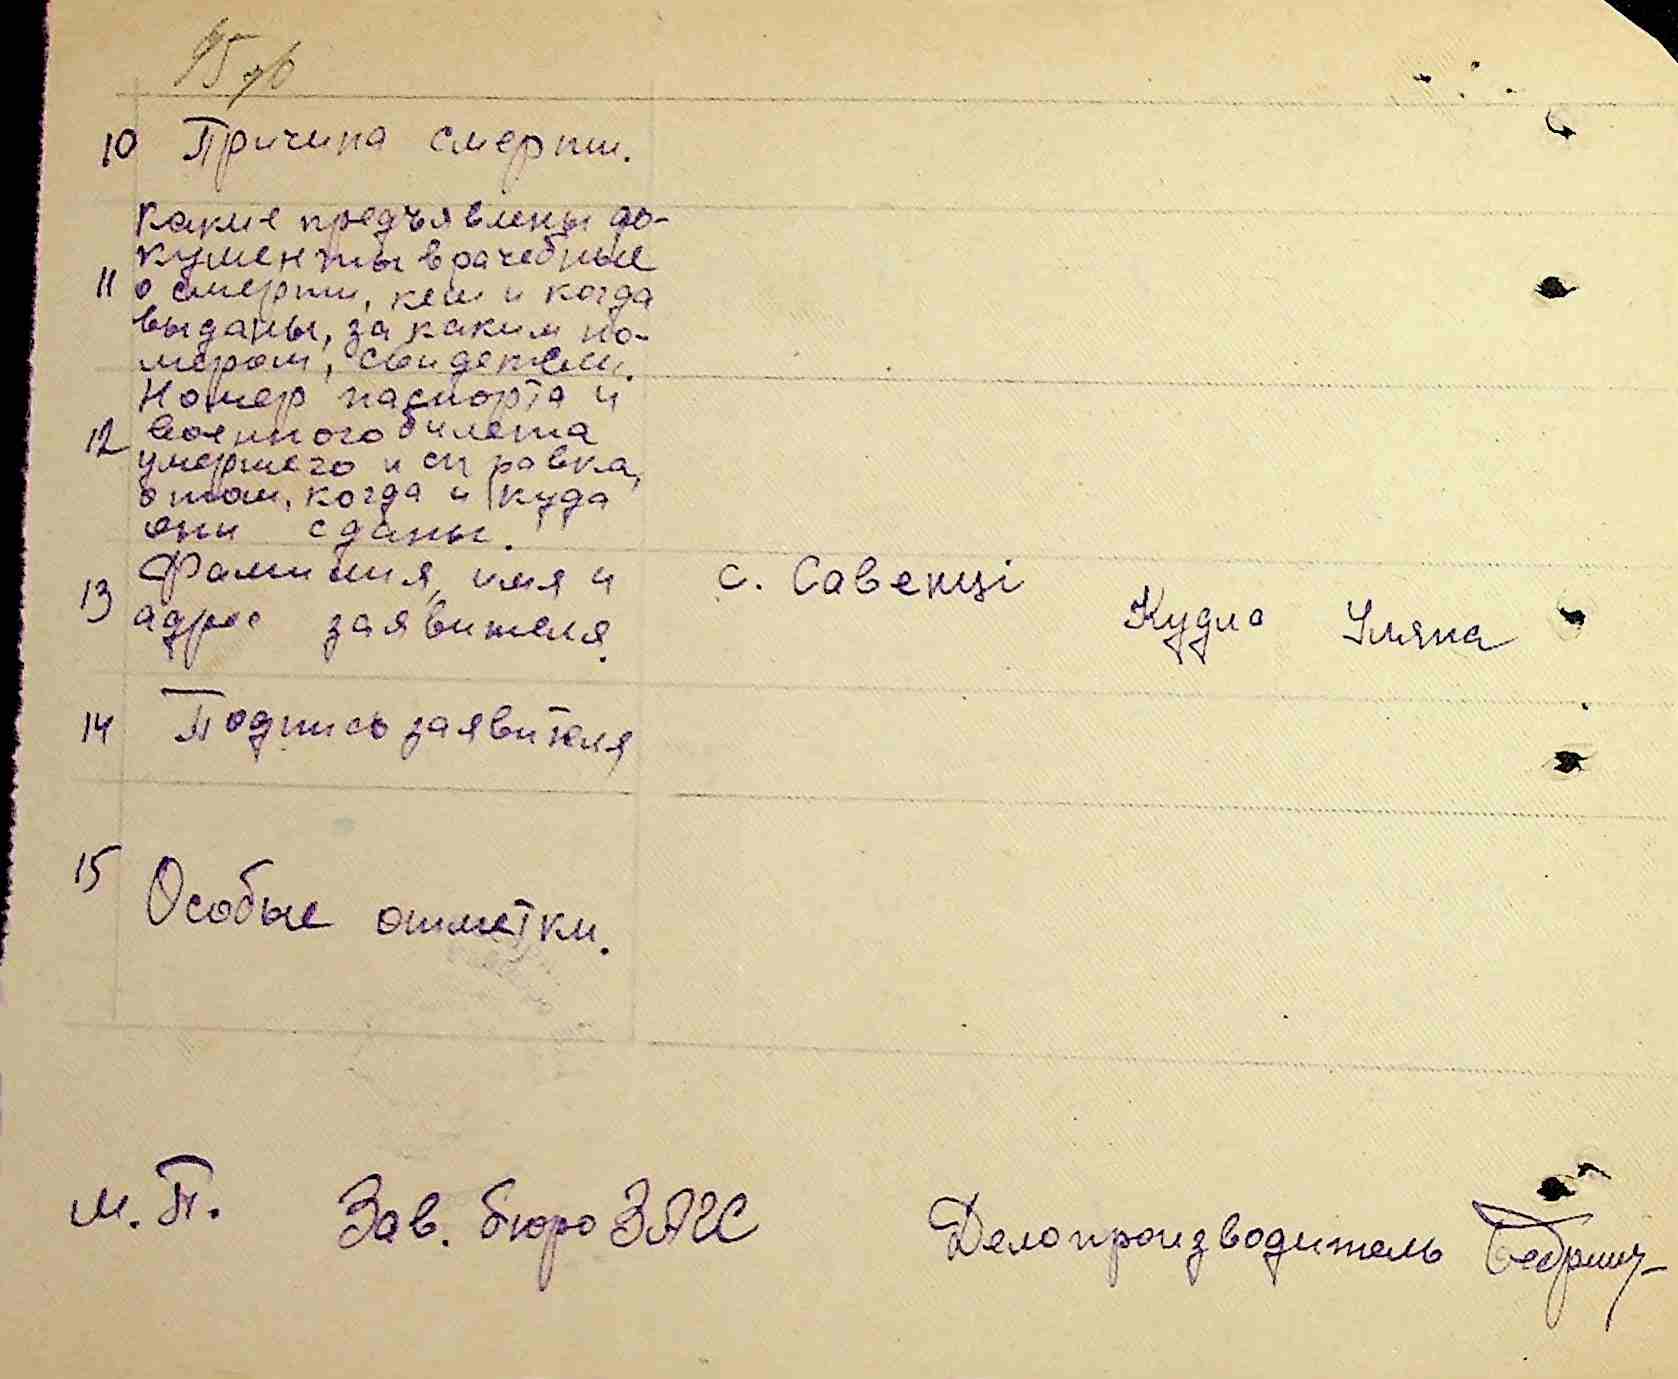 10 Причина смерти.
Какие предъявлены до-
кументы врачебные
11 о смерти, кем и когда
выданы, за каким но-
мером, свидетели.
Номер паспорта и
12 военного билета
умершего и справка,
о том, когда и куда
они сданы.
13 Фамилия, имя и с. Савенці
адрес заявителя. Кудла Уляна
14 Подпись заявителя
15 Особые отметки.
М.П. Зав. бюро ЗАГС Делопроизводитель